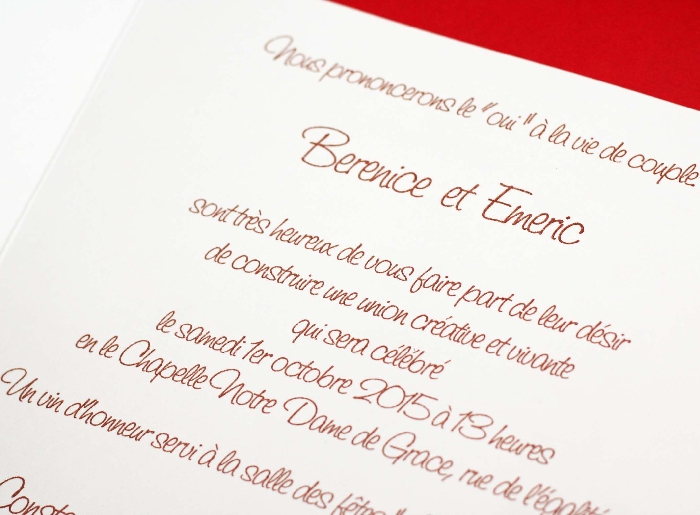 Nous prononcerons le "oui" à la vie de couple
Berenice et Emeric
sont très heureux de vous faire part de leur désir
de construire une union créative et vivante
qui sera célébré
le samedi 1er octobre 2015 à 13 heures
en le Chapelle Notre Dame de Grace, rue de l'égalité
Un vin d'honneur servi à la salle des fêtes